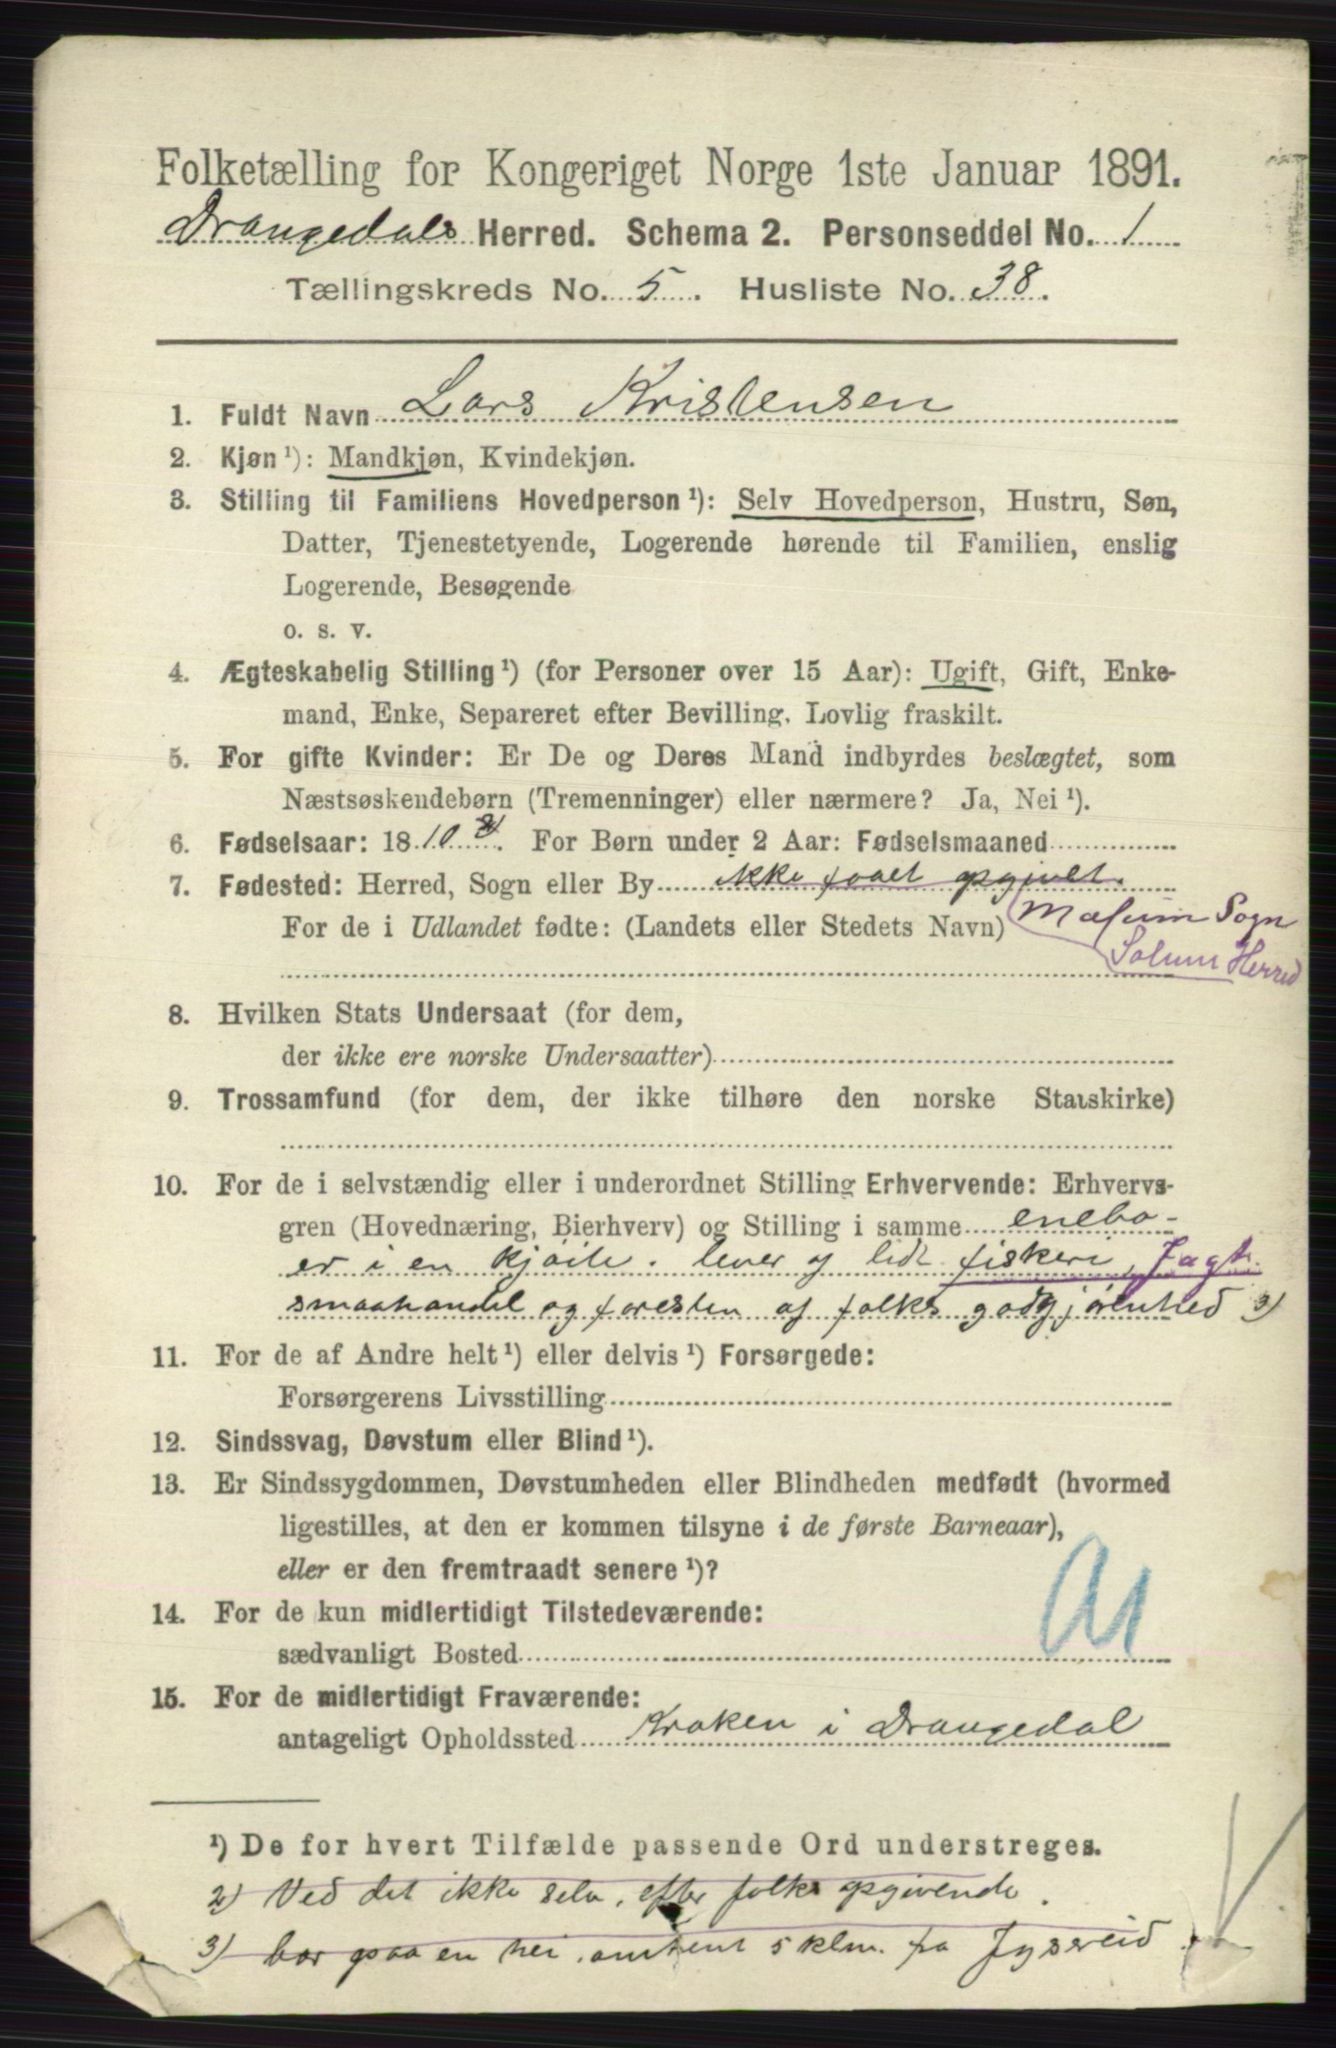 Folketælling for Kongeriget Norge 1ste Januar 1891.
Drangedals Herred. Schema 2. Personseddel No. 1
Tællingskreds No. 5. Husliste No. 38.
1. Fuldt Navn Lars Kristensen
2. Kjøn ¹): Mandkjøn, Kvindekjøn.
3. Stilling til Familiens Hovedperson ¹): Selv Hovedperson, Hustru, Søn,
Datter, Tjenestetyende, Logerende hørende til Familien, enslig
Logerende, Besøgende
o. s. v.
4. Ægteskabelig Stilling ¹) (for Personer over 15 Aar): Ugift, Gift, Enke-
mand, Enke, Separeret efter Bevilling. Lovlig fraskilt.
5. For gifte Kvinder: Er De og Deres Mand indbyrdes beslægtet, som
Næstsøskendebørn (Tremenninger) eller nærmere? Ja, Nei ¹).
6. Fødselsaar: 1810 ²). For Børn under 2 Aar: Fødselsmaaned
7. Fødested: Herred, Sogn eller By ikke faaet opgivet.
For de i Udlandet fødte: (Landets eller Stedets Navn) Mælum Sogn
Solum Herred
8. Hvilken Stats Undersaat (for dem,
der ikke ere norske Undersaatter)
9. Trossamfund (for dem, der ikke tilhøre den norske Statskirke)
10. For de i selvstændig eller i underordnet Stilling Erhvervende: Erhvervs-
gren (Hovednæring, Bierhverv) og Stilling i samme enebo-
er i en kjoile. lever af lidt fiskeri, Jagt
smaahandel og foresten af folks godgjørenhed 3)
11. For de af Andre helt ¹) eller delvis ¹) Forsørgede:
Forsørgerens Livsstilling
12. Sindssvag, Døvstum eller Blind ¹).
13. Er Sindssygdommen, Døvstumheden eller Blindheden medfødt (hvormed
ligestilles, at den er kommen tilsyne i de første Barneaar),
eller er den fremtraadt senere ¹)?
14. For de kun midlertidigt Tilstedeværende:
sædvanligt Bosted
15. For de midlertidigt Fraværende:
antageligt Opholdssted Kraken i Drangedal
¹) De for hvert Tilfælde passende Ord understreges.
2) Ved det ikke selv, efter folks opgivende.
3) bor paa en hei, omtrent 5 klm. fra